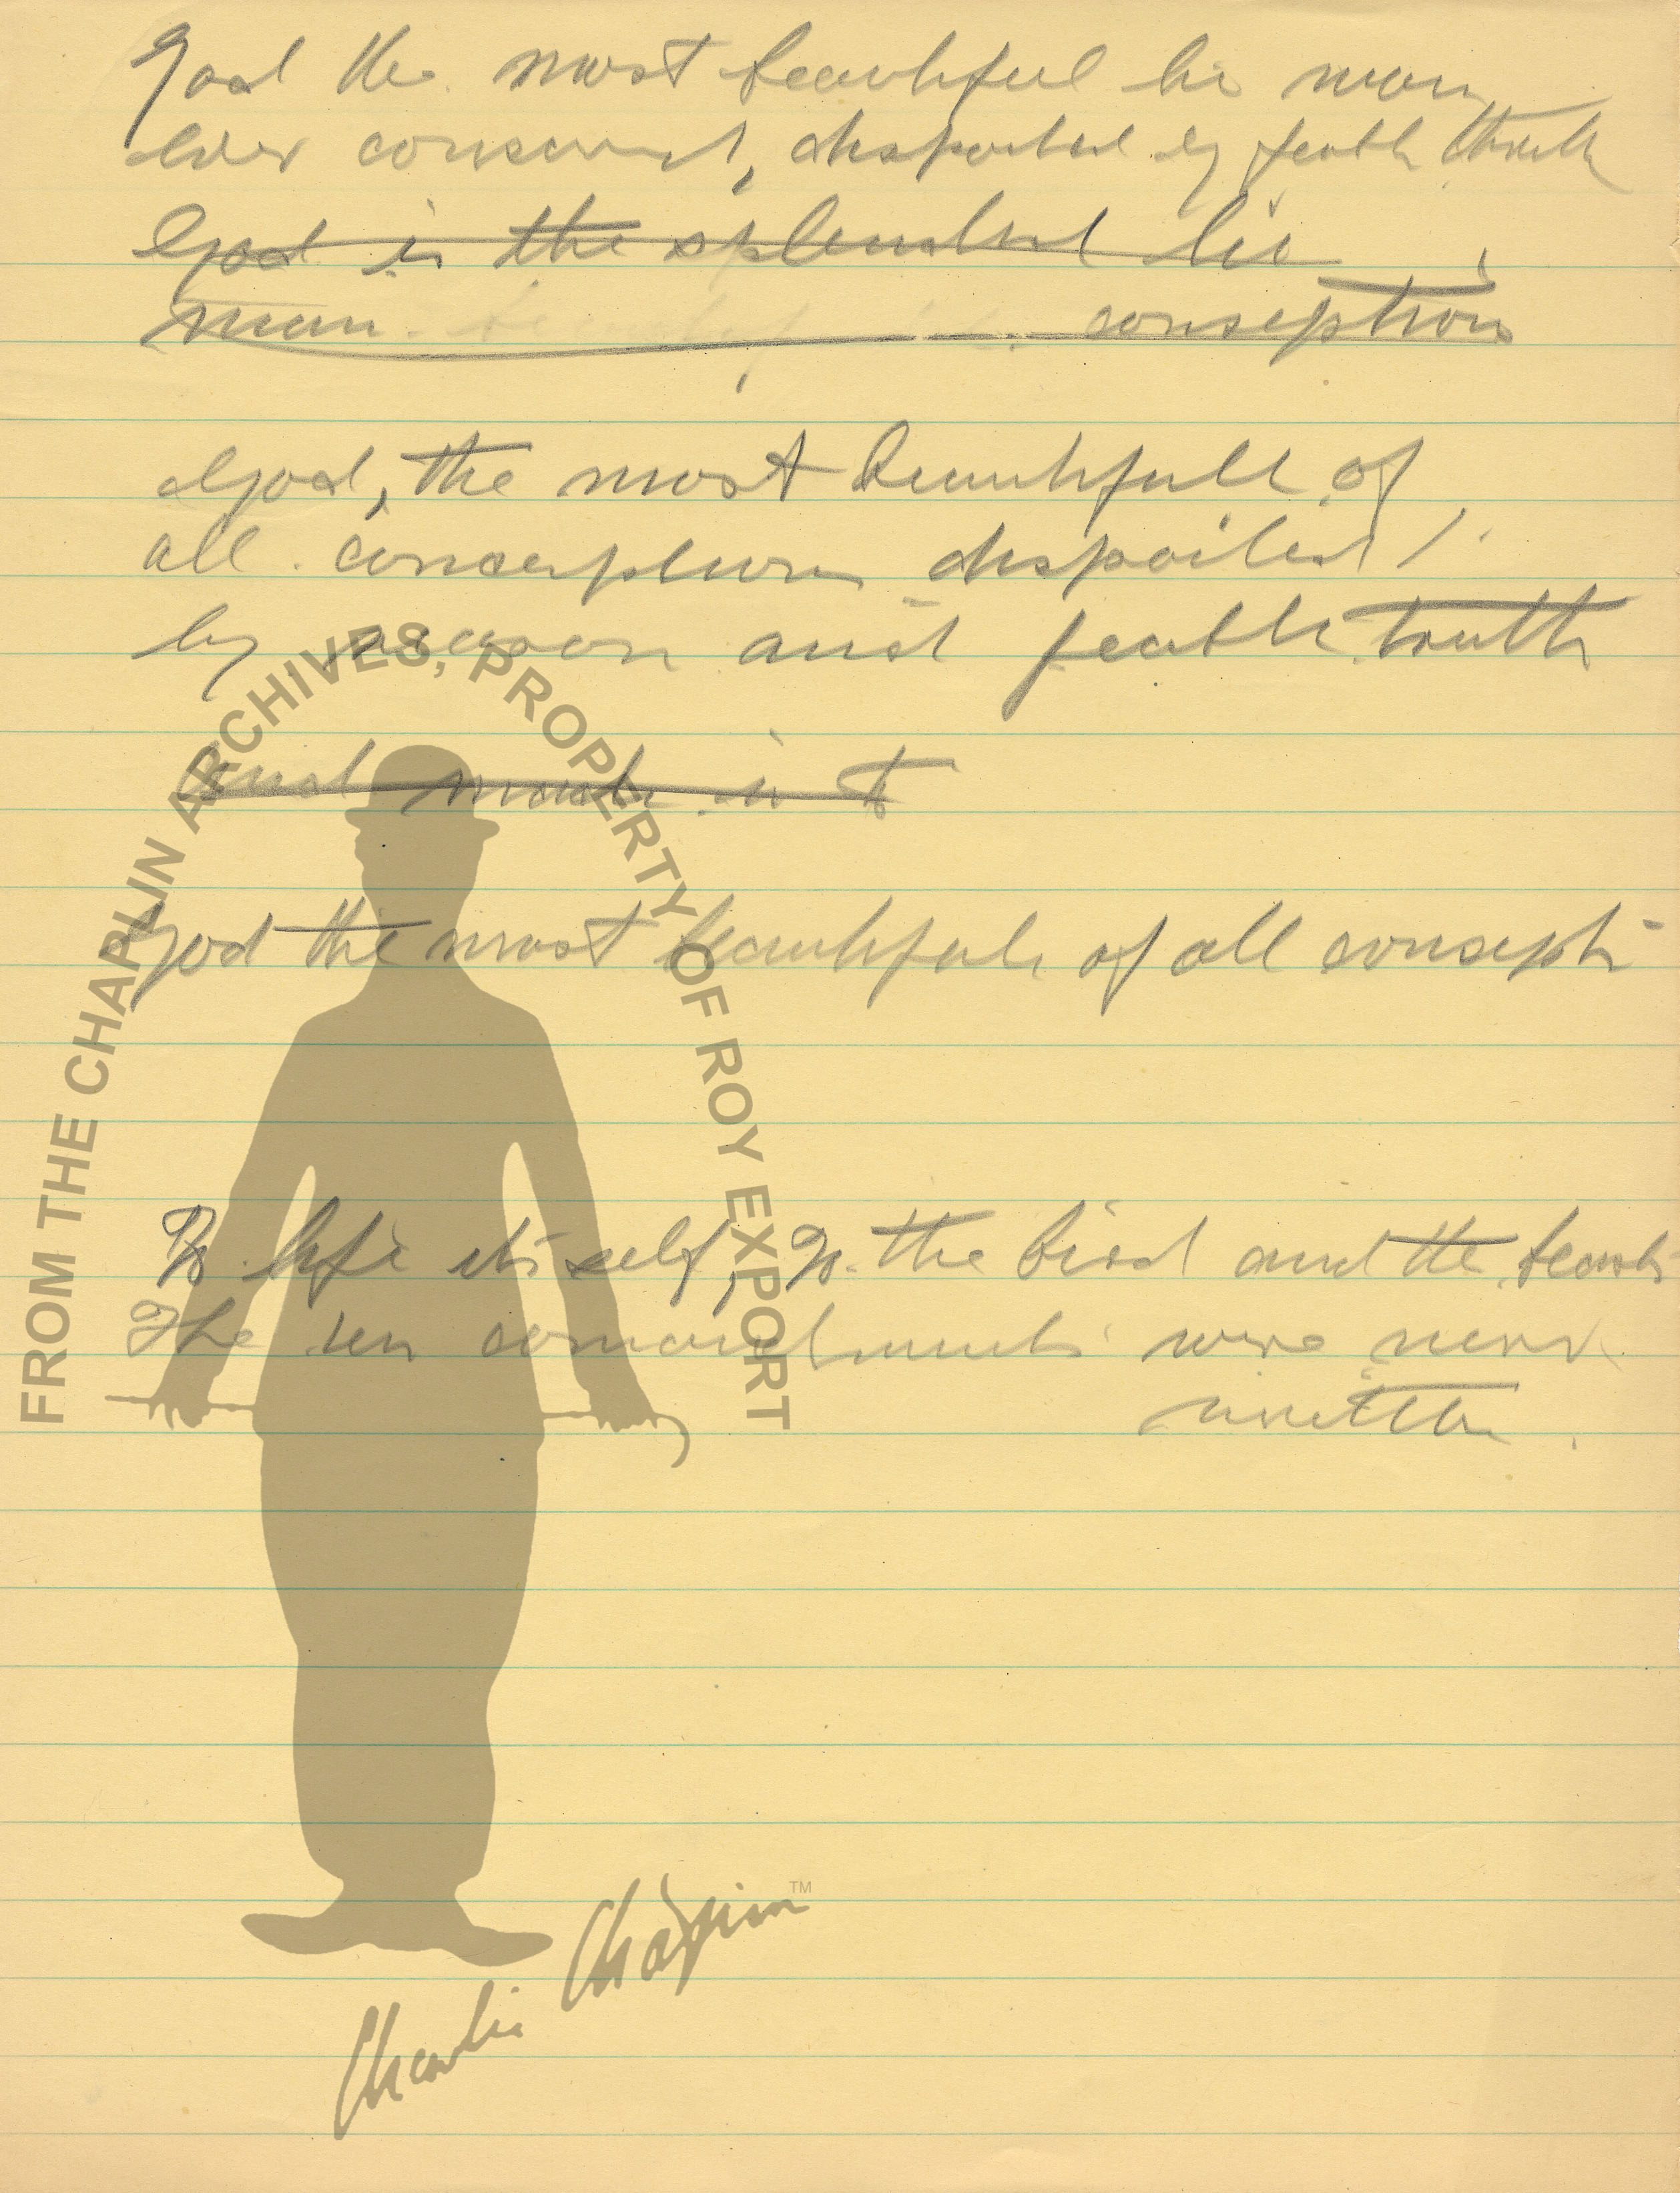 God the most beautiful lie man
ever conserved, dispoiled by feable truth
God is the splended lie
man conseption
God, the most beautifull of
all conseptions dispoiled
by reason and feable truth
and made it
God the most beautifull of all consepti
To life its self, To the bird and the beasts
The ten comandments were never
written.
FROM THE CHAPLIN ARCHIVES, PROPERTY OF ROY EXPORT
Charlie Chaplin TM